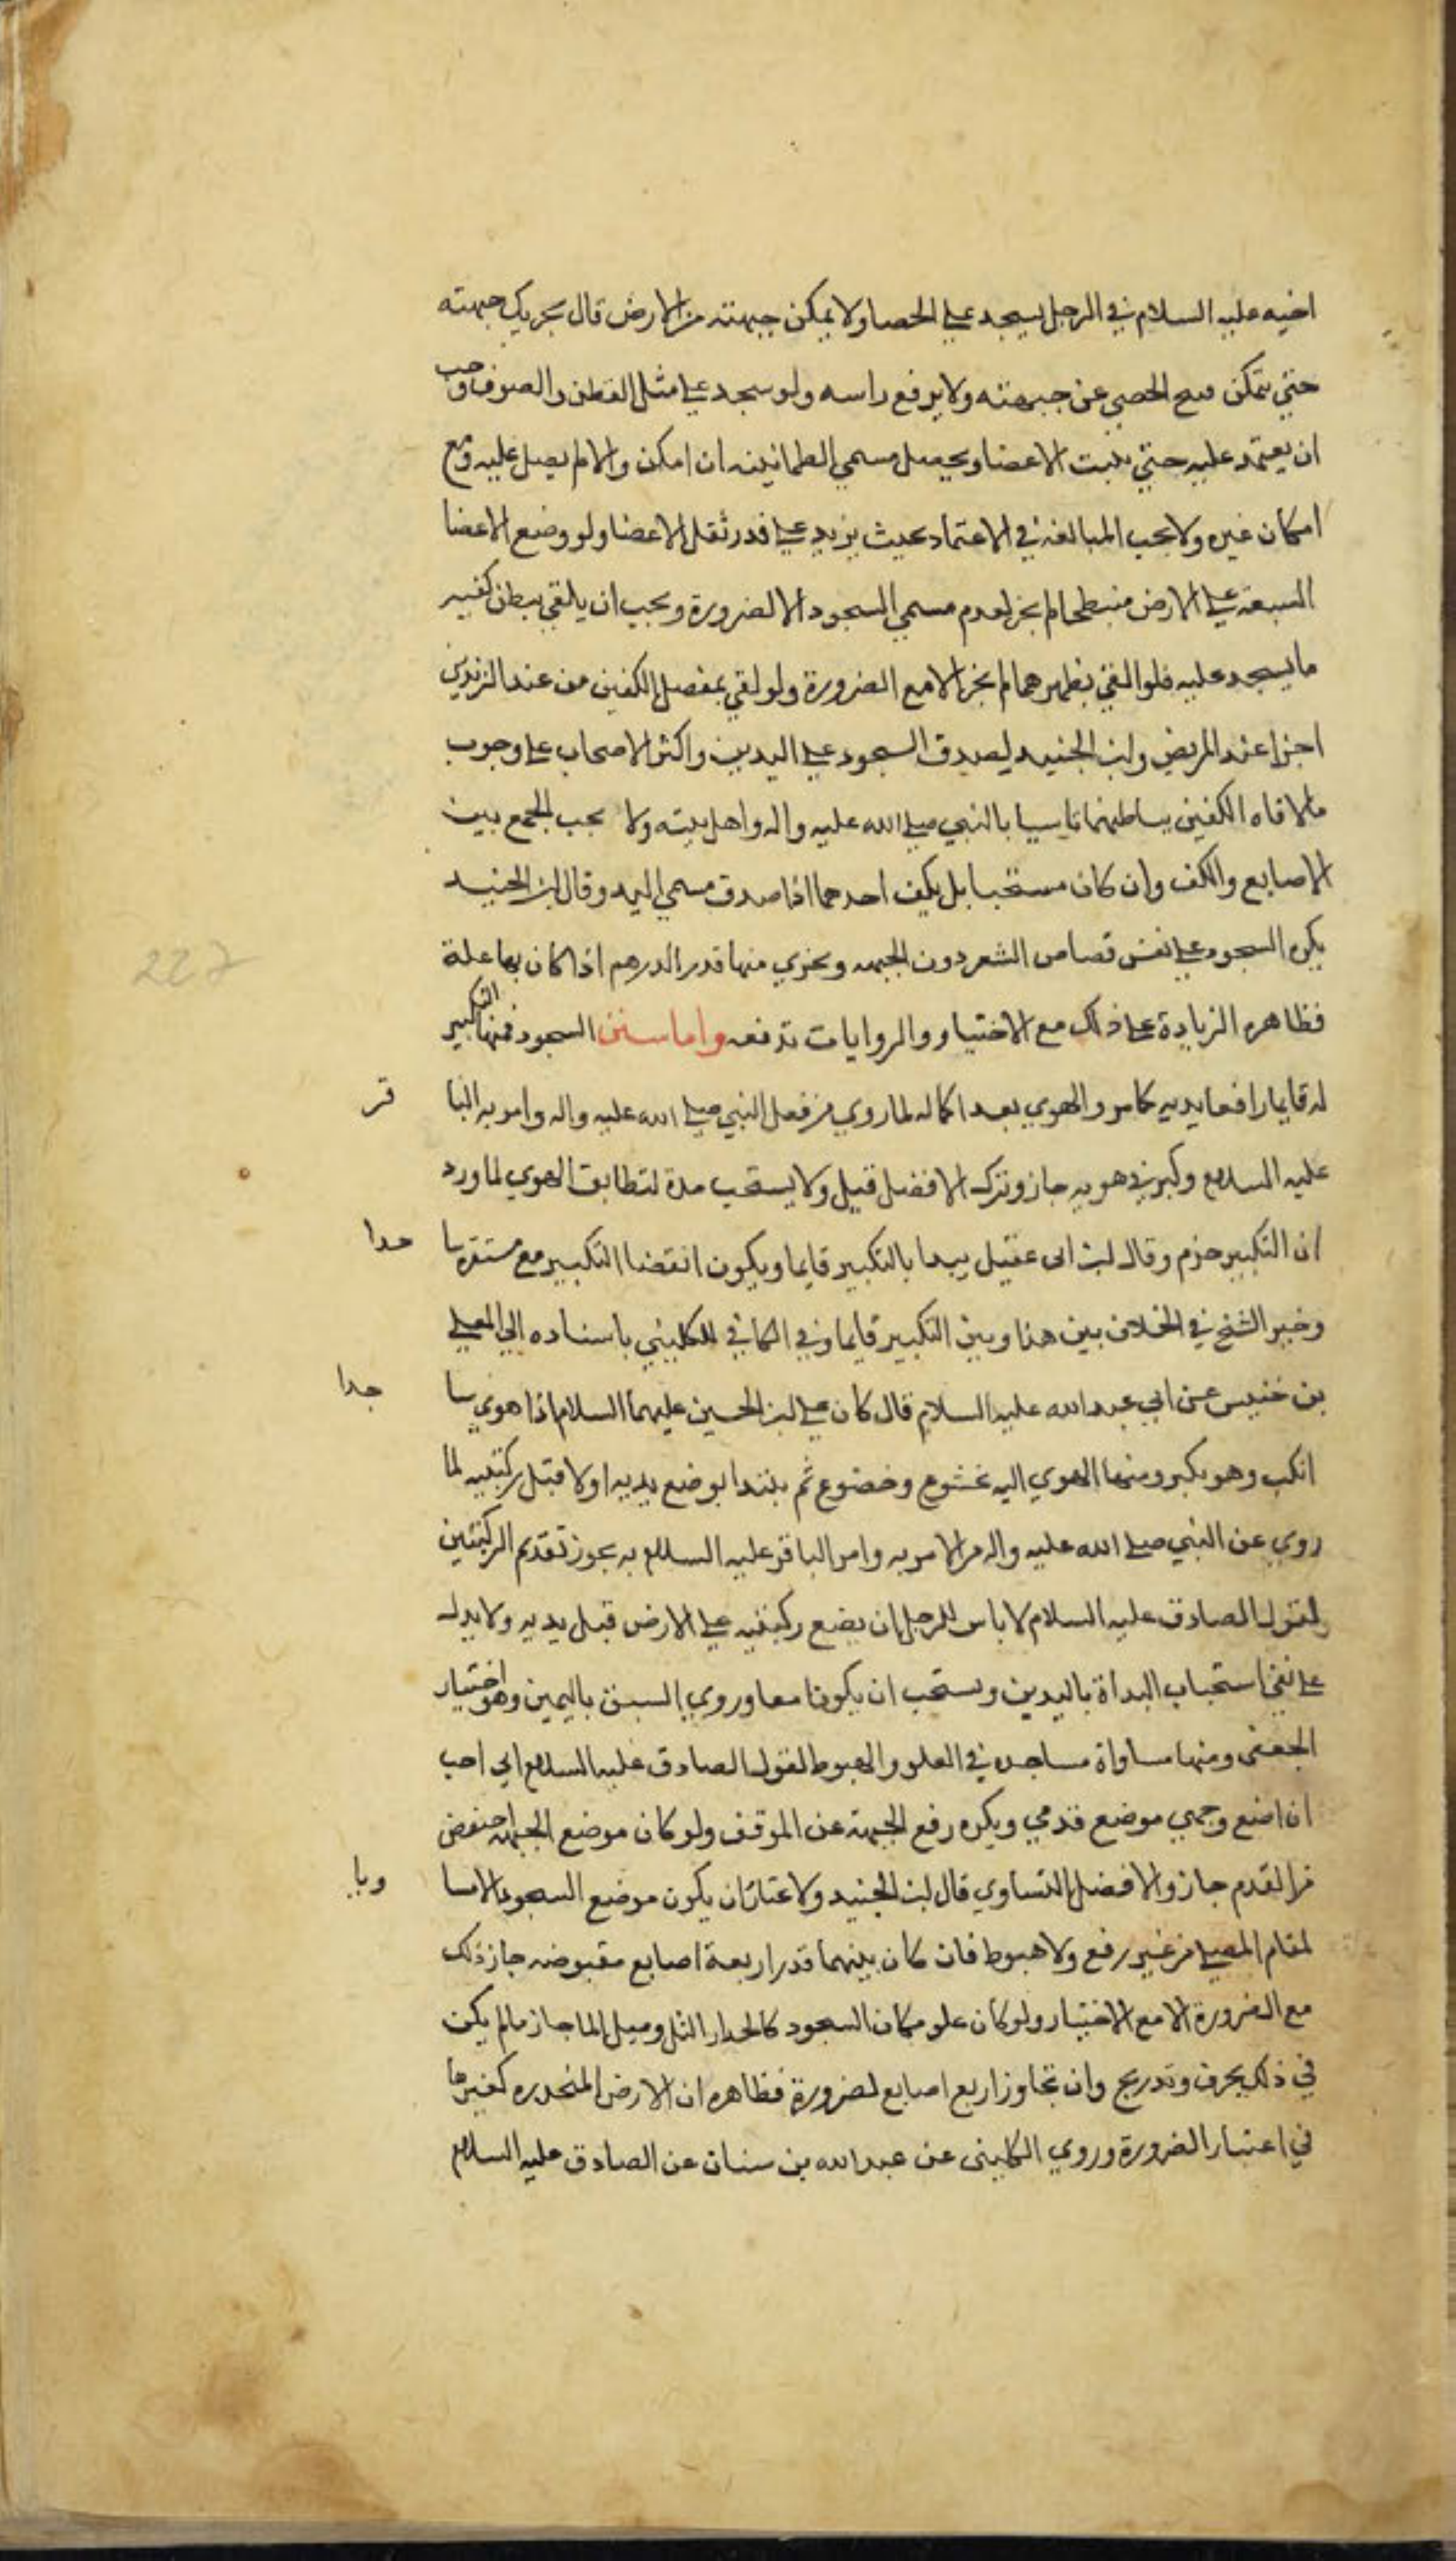 اخيه عليه السلام في الرجل يسجد على الحصا ولا يمكن جبهته من الارض قال يحرك جبهته
حتى يتمكن فينح الحصى عن جبهته ولا يرفع راسه ولو سجد على مثل القطن والصوف وجب
ان يعتمد عليه حتى يثبت الاعضا ويحصل مسمى الطمانينه ان امكن والا لم يصل عليه مع
امكان غيره ولا يجب المبالغه في الاعتماد بحيث يزيد على قدر ثقل الاعضا ولو وضع الاعضا
السبعه على الارض منبطحا لم يجز لعدم مسمى السجود الا لضرورة ويجب ان يلقي ببطن كفيه
ما يسجد عليه فلو القى بظهرهما لم يجز الا مع الضرورة ولو لقي بمفصل الكفين من عند الزندين
اجزا عند المرتضى وابن الجنيد ليصدق السجود على اليدين واكثر الاصحاب على وجوب
ملاقاه الكفين بباطنهما تاسيا بالنبي صلى الله عليه واله واهل بيته ولا يجب الجمع بين
الاصابع والكف وان كان مستحبا بل يكفي احدهما اذا صدق مسمى اليد وقال ابن الجنيد
يكره السجود على نفس قصاص الشعر دون الجبهه ويجزي منها قدر الدرهم اذا كان بها علة
فظاهره الزيادة على ذلك مع الاختيار والروايات تدفعه واما سنن السجود فمنها التكبير
له قايما رافعا يديه كما مر والهوي بعد اكماله لما روي من فعل النبي صلى الله عليه واله وامر به البا قر
عليه السلام وكبر في هويه جاز وترك الافضل قيل ولا يستحب مده لتطابق الهوي لما ورد
ان التكبير جزم وقال ابن ابى عقيل يبدا بالتكبير قايما ويكون انقضا التكبير مع مستقره سا جدا
وخير الشيخ في الخلاف بين هذا وبين التكبير قايما وفي الكافي للكليني باسناده الى المعلى
بن خنيس عن ابي عبد الله عليه السلام قال كان على ابن الحسين عليهما السلام اذا هوي سا جدا
انكب وهو يكبر ومنها الهوي اليه بخشوع وخضوع ثم يبتدا بوضع يديه اولا قبل ركبتيه لما
روي عن النبي صلى الله عليه واله من الامر به وامر الباقر عليه السلام به يجوز تقديم الركبتين
لقول الصادق عليه السلام لا باس للرجل ان يضع ركبتيه على الارض قبل يديه ولا يدل
على نفي استحباب البداة باليدين ويستحب ان يكونا معا وروي السبق باليمين وهو اختيار
الجعفى ومنها مساواة مساجده في العلو والهبوط لقول الصادق عليه السلام اني احب
ان اضع وجهي موضع قدمي ويكره رفع الجبهة عن الموقف ولو كان موضع الجبهة اخفض
من القدم جاز والافضل التساوي قال ابن الجنيد ولا ان يكون موضع السجود الا مسا ويا
لمقام المصلى من غير رفع ولا هبوط فان كان بينهما قدر اربعة اصابع مقبوضه جاز ذلك
مع الضرورة لا مع الاختيار ولو كان علو مكان السجود كالحدار التل وميل الما جاز ما لم يكن
في ذلك يحرف وتدريج وان تجاوز اربع اصابع لضرورة فظاهره ان الارض المنحدره كغيرها
في اعتبار الضرورة وروي الكلينى عن عبد الله بن سنان عن الصادق عليه السلام
227